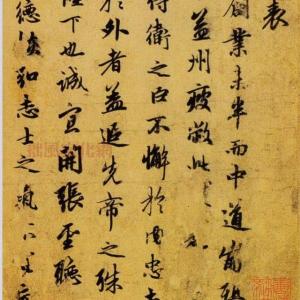 表
創業未半而中道崩殂
益州疲敝此
侍衛之臣不懈於内忠志
於外者蓋追先帝之殊
陛下也誠宜開張聖聽
德恢弘志士之氣不宜妄